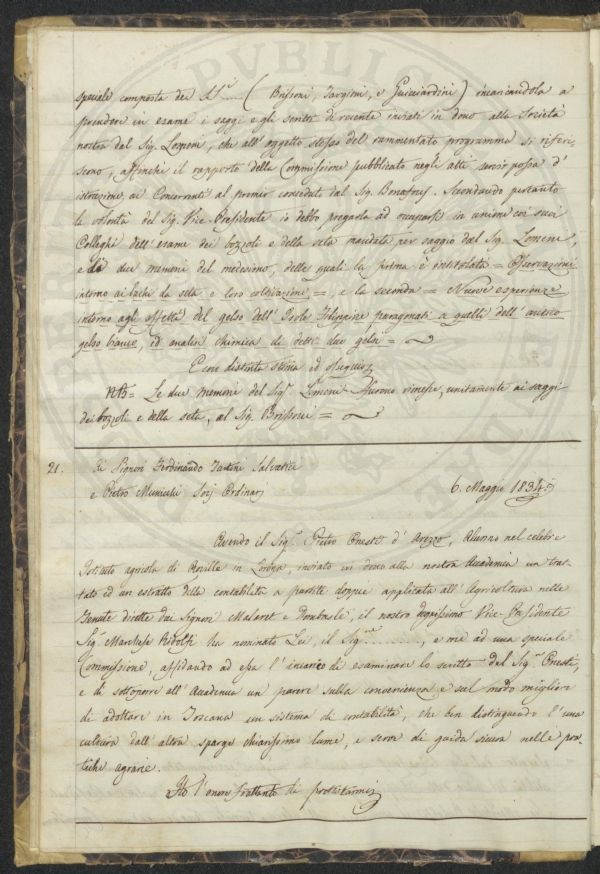 speciale composta dei SS.ri ..... ( Brissoni, Targioni, e Guicciardini) incaricandola a
prendere in esame i saggi e gli scritti di recente inviati in dono alla Società
nostra dal Sig. Lomeni, che all'oggetto stesso del rammentato programma si riferi-
scono, affinchè il rapporto della Commissione pubblicato negli atti servir possa d'
istruzione ai Concorrenti al premio conceduto dal Sig. Bonafous. Secondando pertanto
la volontà del Sig. Vice Presidente io debbo pregarla ad occuparsi in unione coi suoi
Colleghi dell'esame dei bozzoli e della seta mandata per saggio dal Sig. Lomeni,
e di due memorie del medesimo, delle quali la prima è intitolata = Osservazioni
intorno ai bachi da seta e loro coltivazione =, e la seconda = Nuove esperienze
intorno agli effetti del gelso dell'Isole Filippine paragonati a quelli dell'antico
gelso bianco, ed analisi chimica di detti due gelsi =
E con distinta stima ed ossequio
NB = Le due memorie del Sig.r Lomeni furono rimesse, unitamente ai saggi
dei bozzoli e della seta, al Sig. Brissoni =
21. Ai Signori Ferdinando Tartini Salvatici
e Pietro Municchi Socj Ordinarj
6. Maggio 1834.
Avendo il Sig.r Pietro Onesti d'Arezzo, Alunno nel celebre
Istituto agricola di Roville in Lorena, inviato in dono alla nostra Accademia un trat-
tato ed un estratto della contabilità a partite doppie applicata all'Agricoltura nelle
Tenute dirette dai Signori Malaret e Dombasle, il nostro degnissimo Vice-Presidente
Sig.r Marchese Ridolfi ha nominato Lei, il Sig.re .........., e me ad una speciale
Commissione, affidando ad essa l'incarico di esaminare lo scritto del Sig.r Onesti,
e di sottoporre all'Accademia un parere sulla convenienza e sul modo migliore
di adottare in Toscana un sistema di contabilità, che ben distinguendo l'una
cultura dall'altra sparge chiarissimo lume, e serve di guida sicura nelle pra-
tiche agrarie.
Ho l'onore frattanto di protestarmi